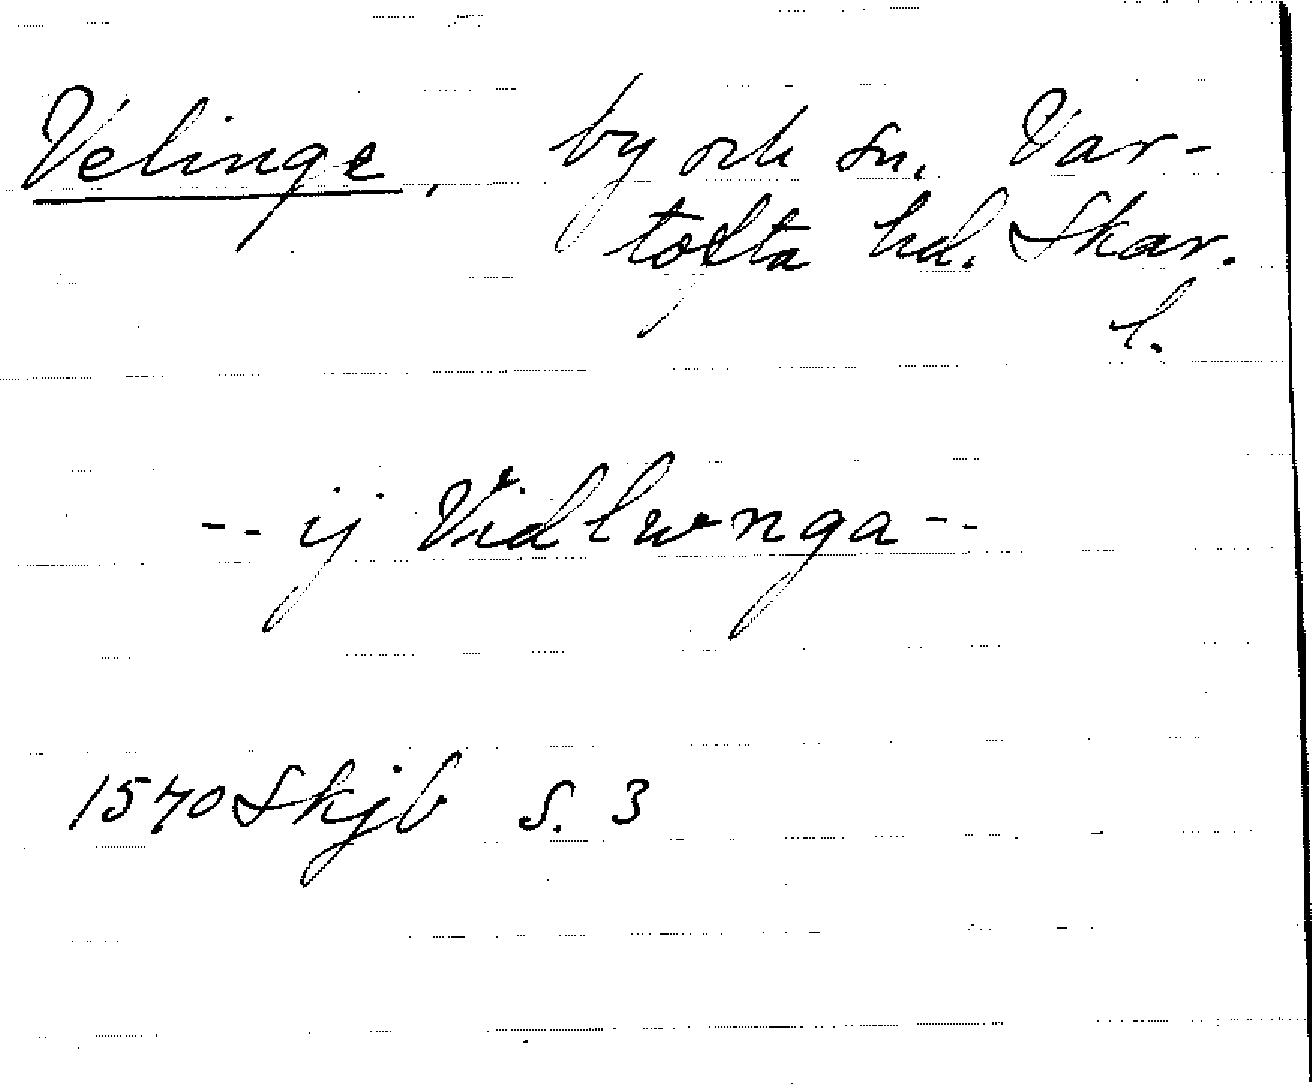 Velinge, by och sn. Var-
tofta hd. Skar.
l.
-- ij Vidhlwnga --
1570 Skjb s. 3